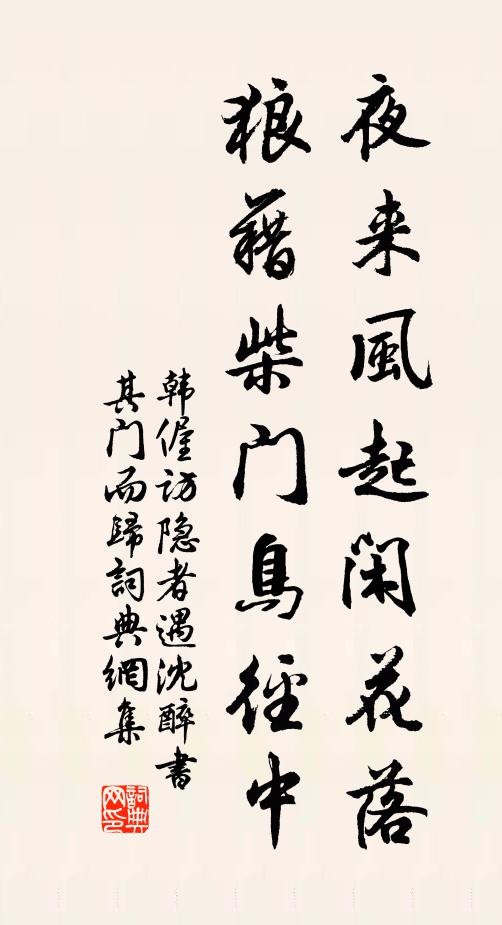 夜来風起閑花落
狼藉柴门鳥徑中
韩偓访隐者遇沈醉書
其门而歸詞典網集
詞典网印